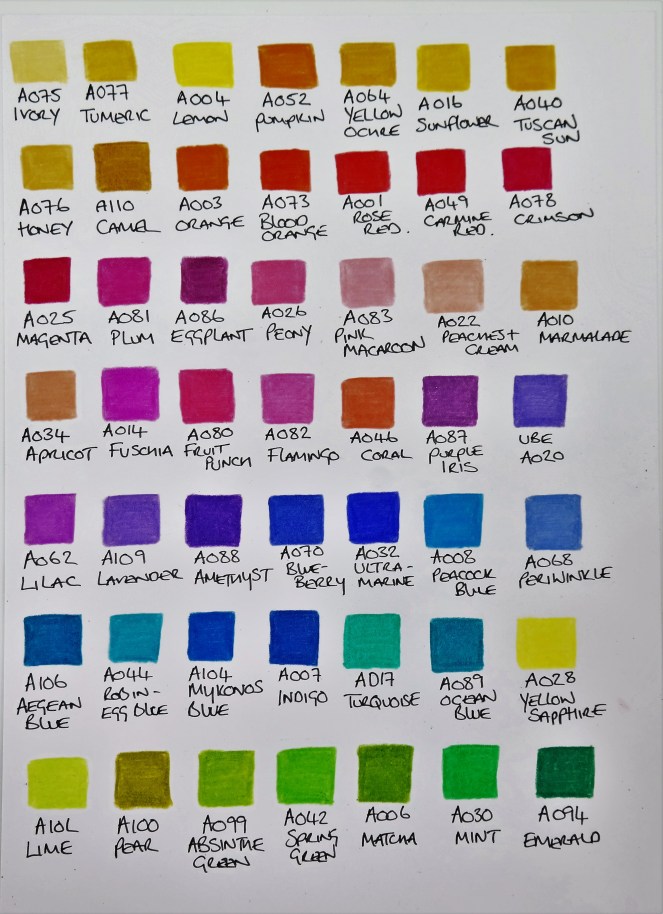 A075
IVORY
A077
TUMERIC
A004
LEMON
A052
PUMPKIN
A064
YELLOW
OCHRE
A016
SUNFLOWER
A040
TUSCAN
SUN
A076
HONEY
A110
CAMEL
A003
ORANGE
A073
BLOOD
ORANGE
A001
ROSE
RED.
A049
CARMINE
RED.
A078
CRIMSON
A025
MAGENTA
A081
PLUM
A086
EGGPLANT
A026
PEONY
A083
PINK
MACAROON
A022
PEACHES+
CREAM
A010
MARMALADE
A034
APRICOT
A014
FUSCHIA
A080
FRUIT
PUNCH
A082
FLAMINGO
A046
CORAL
A087
PURPLE
IRIS
UBE
A020
A062
LILAC
A109
LAVENDER
A088
AMETHYST
A070
BLUE-
BERRY
A032
ULTRA-
MARINE
A008
PEACOCK
BLUE
A068
PERIWINKLE
A106
AEGEAN
BLUE
A044
ROBIN-
EGG BLUE
A104
MYKONOS
BLUE
A007
INDIGO
A017
TURQUOISE
A089
OCEAN
BLUE
A028
YELLOW
SAPPHIRE
LIME
A100
PEAR
A099
ABSINTHE
GREEN
A042
SPRING
GREEN
A006
MATCHA
A030
MINT
A094
EMERALD